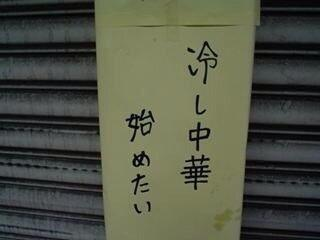 冷し中華
始めたい